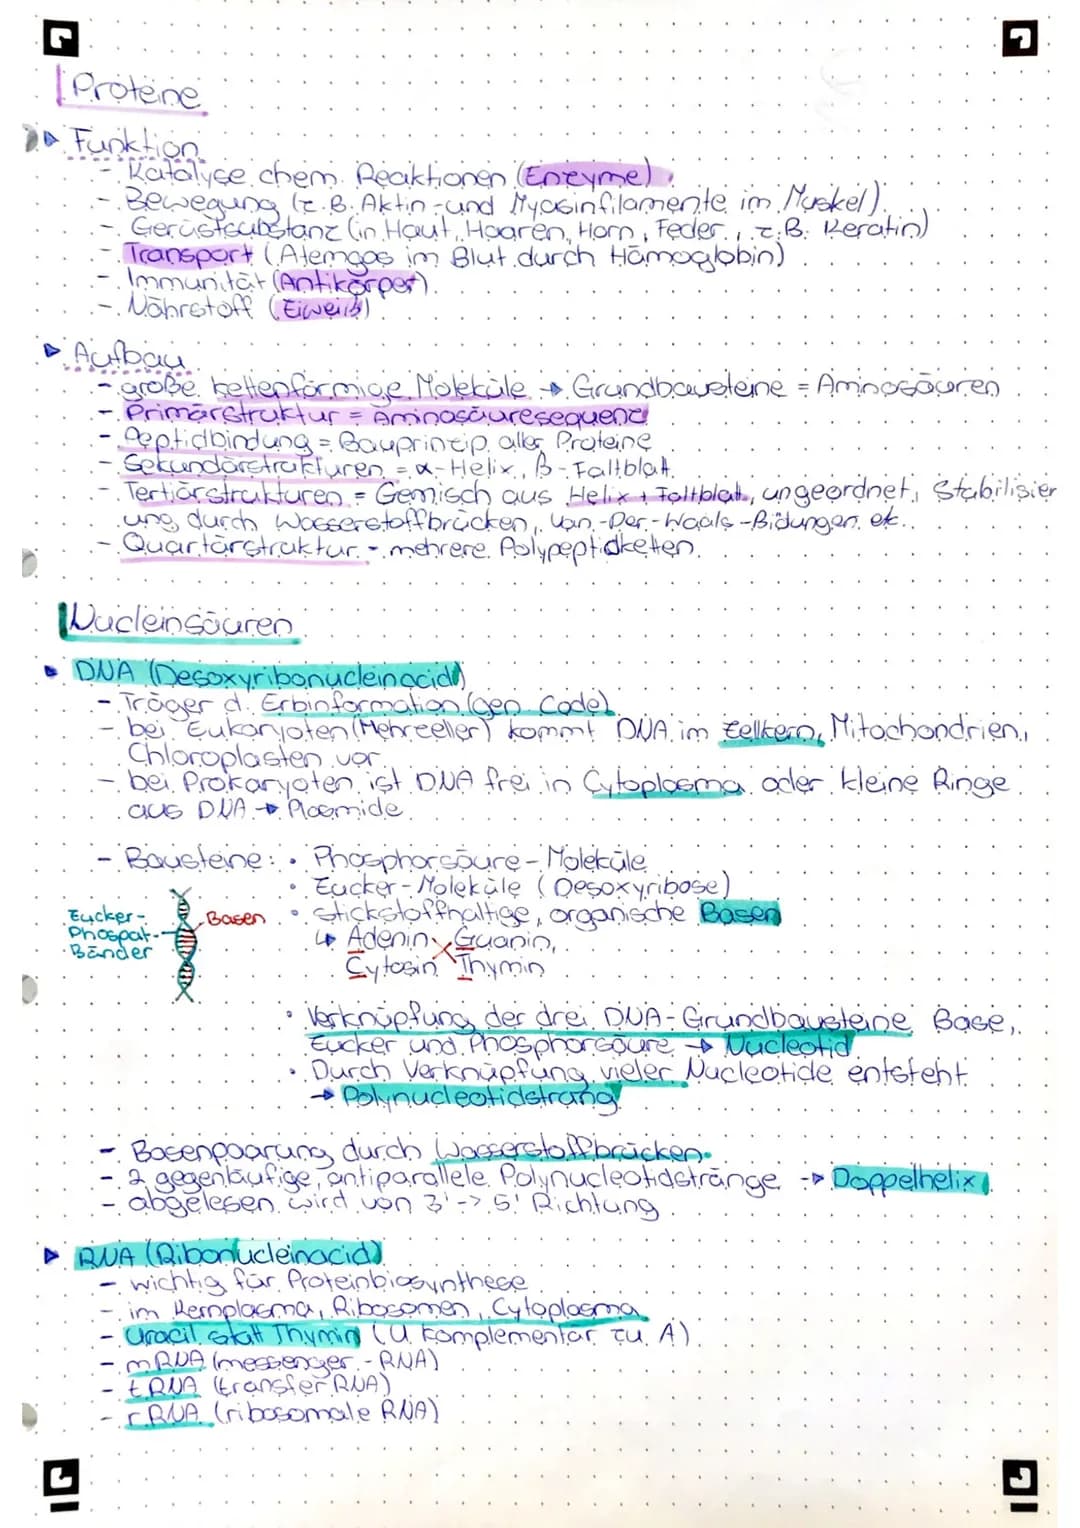 Proteine
Funktion
- Katalyse chem. Reaktionen (Enzyme)
- Bewegung (z.B. Aktin- und Myosinfilamente im Muskel)
- Gerüstsubstanz (in Haut, Haaren, Horn, Feder, z.B. Keratin)
- Transport (Atemgas im Blut durch Hämoglobin)
- Immunität (Antikörper)
- Nährstoff (Eiweiß)
Aufbau
- große kettenförmige Moleküle → Grundbausteine = Aminosäuren
- Primärstruktur = Aminosäuresequenz
- Peptidbindung = Bauprinzip aller Proteine
- Sekundärstrukturen = α-Helix, β-Faltblatt
- Tertiärstrukturen = Gemisch aus Helix + Faltblat, ungeordnet, Stabilisier
ung durch Wasserstoffbrücken, Van-Der-Waals-Bidungen etc.
- Quartärstruktur - mehrere Polypeptidketten
Nucleinsäuren
DNA (Desoxyribonucleinacid)
- Träger d. Erbinformation (gen. Code)
- bei Eukaryoten (Mehrzeller) kommt DNA im Zellkern, Mitochondrien,
Chloroplasten vor
- bei Prokaryoten ist DNA frei in Cytoplasma oder kleine Ringe
aus DNA → Plasmide
- Bausteine: • Phosphorsäure-Moleküle
• Zucker-Moleküle (Desoxyribose)
• stickstoffhaltige, organische Basen
↳ Adenin, Guanin,
Cytosin Thymin
Zucker-
Phospat-
Bänder
Basen
• Verknüpfung der drei DNA-Grundbausteine Base,
Zucker und Phosphorsäure → Nucleotid
• Durch Verknüpfung vieler Nucleotide entsteht
→ Polynucleotidstrang
- Basenpaarung durch Wasserstoffbrücken
- 2 gegenläufige, antiparallele Polynucleotidstränge → Doppelhelix
- abgelesen wird von 3' -> 5' Richtung
RNA (Ribonucleinacid)
- wichtig für Proteinbiosynthese
- im Kernplasma, Ribosomen, Cytoplasma
- Uracil statt Thymin (U komplementär zu A)
- mRNA (messenger-RNA)
- tRNA (transfer RNA)
- rRNA (ribosomale RNA)